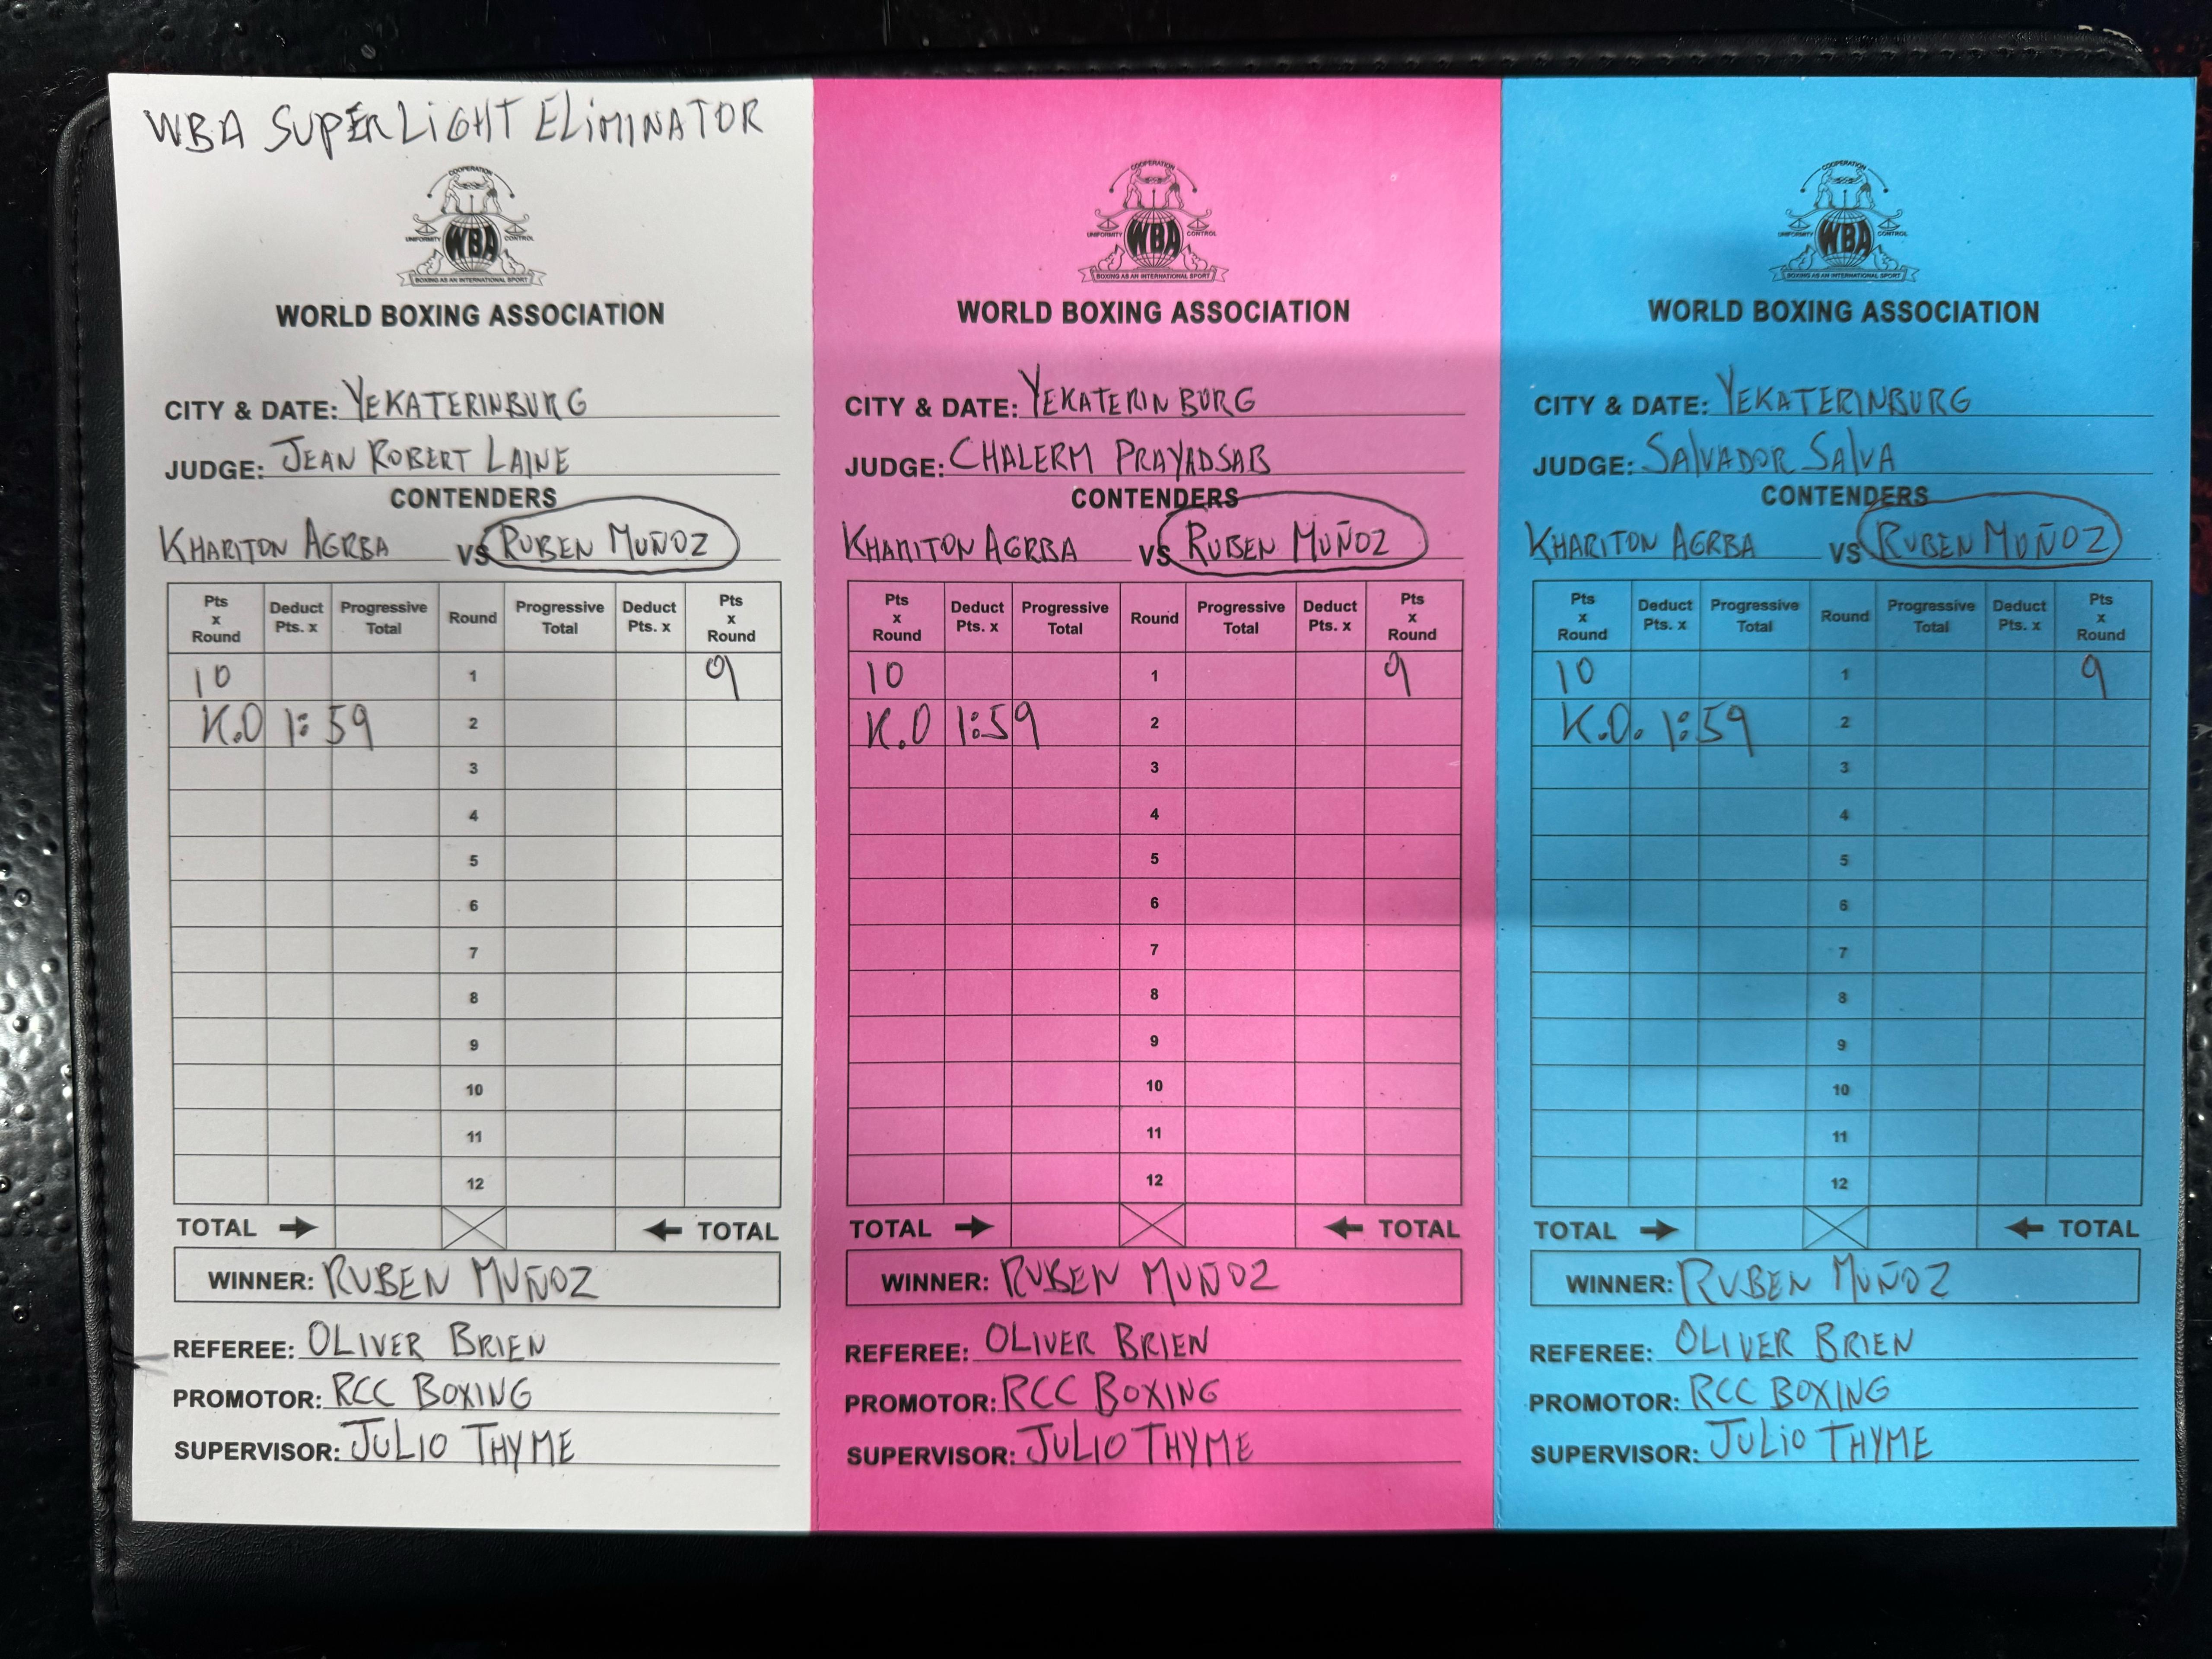 WBA SUPER LIGHT ELIMINATOR
COOPERATION
UNIFORMITY WBA CONTROL
BOXING AS AN INTERNATIONAL SPORT
WORLD BOXING ASSOCIATION
CITY & DATE: YEKATERINBURG
JUDGE: JEAN ROBERT LAINE
CONTENDERS
KHARITON AGRBA VS RUBEN MUÑOZ
Pts x Round Deduct Pts. x Progressive Total Round Progressive Total Deduct Pts. x Pts x Round
10 1 9
K.O 1:59 2
3
4
5
6
7
8
9
10
11
12
TOTAL TOTAL
WINNER: RUBEN MUÑOZ
REFEREE: OLIVER BRIEN
PROMOTOR: RCC BOXING
SUPERVISOR: JULIO THYME
COOPERATION
UNIFORMITY WBA CONTROL
BOXING AS AN INTERNATIONAL SPORT
WORLD BOXING ASSOCIATION
CITY & DATE: YEKATERINBURG
JUDGE: CHALERM PRAYADSAB
CONTENDERS
KHARITON AGRBA VS RUBEN MUÑOZ
Pts x Round Deduct Pts. x Progressive Total Round Progressive Total Deduct Pts. x Pts x Round
10 1 9
K.O 1:59 2
3
4
5
6
7
8
9
10
11
12
TOTAL TOTAL
WINNER: RUBEN MUÑOZ
REFEREE: OLIVER BRIEN
PROMOTOR: RCC BOXING
SUPERVISOR: JULIO THYME
COOPERATION
UNIFORMITY WBA CONTROL
BOXING AS AN INTERNATIONAL SPORT
WORLD BOXING ASSOCIATION
CITY & DATE: YEKATERINBURG
JUDGE: SALVADOR SALVA
CONTENDERS
KHARITON AGRBA VS RUBEN MUÑOZ
Pts x Round Deduct Pts. x Progressive Total Round Progressive Total Deduct Pts. x Pts x Round
10 1 9
K.O. 1:59 2
3
4
5
6
7
8
9
10
11
12
TOTAL TOTAL
WINNER: RUBEN MUÑOZ
REFEREE: OLIVER BRIEN
PROMOTOR: RCC BOXING
SUPERVISOR: JULIO THYME